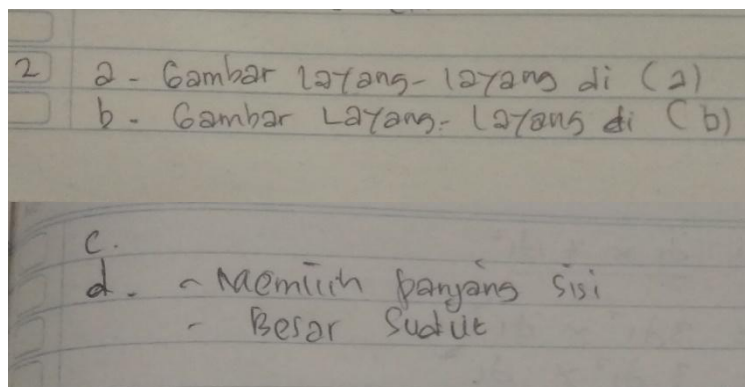 2 a - Gambar Layang - layang di (a)
b - Gambar Layang - Layang di (b)
c.
d. - Memilih panjang sisi
- Besar Sudut